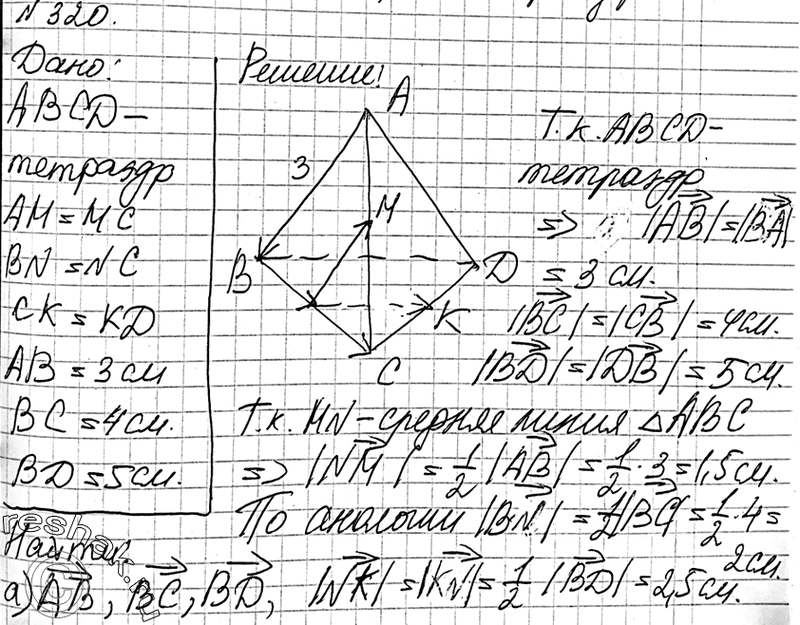 N 320.
Дано:
ABCD –
тетраэдр
AM = MC
BN = NC
CK = KD
AB = 3 см
BC = 4 см.
BD = 5 см.
Найти:
а) AB, BC, BD,
Решение:
A
3
M
B
D
K
C
Т.к. ABCD –
тетраэдр
=> |AB| = |BA|
= 3 см.
|BC| = |CB| = 4 см.
|BD| = |DB| = 5 см.
Т.к. MN – средняя линия △ ABC
=> |NM| = 1/2 |AB| = 1/2 · 3 = 1,5 см.
По аналогии |BN| = 1/2 |BC| = 1/2 · 4 =
2 см.
|NK| = |KN| = 1/2 |BD| = 2,5 см.